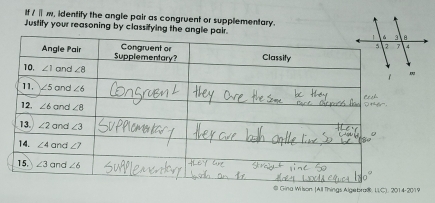 If l ∥ m, identify the angle pair as congruent or supplementary.
Justify your reasoning by classifying the angle pair.
Angle Pair Congruent or Supplementary? Classify
10. ∠1 and ∠8
11. ∠5 and ∠6 Congruent they are the same bc they are across from each other
12. ∠6 and ∠8
13. ∠2 and ∠3 Supplementary they are both on the line so they would be 180°
14. ∠4 and ∠7
15. ∠3 and ∠6 Supplementary they are both on the straight line so they would equal 180°
1 6 3 8
5 2 7 4
l m
© Gina Wilson (All Things Algebra®, LLC), 2014-2019